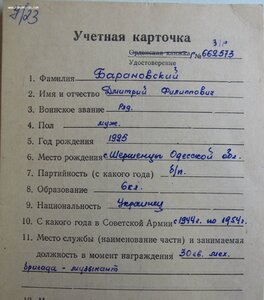 Учетная карточка
З/п
Орденская книжка № 662573
Удостоверение
1. Фамилия Барановский
2. Имя и отчество Дмитрий Филиппович
3. Воинское звание Ряд.
4. Пол муж.
5. Год рождения 1925
6. Место рождения с. Шершенцы Одесской обл.
7. Партийность (с какого года) б/п.
8. Образование 6 кл.
9. Национальность Украинец
10. С какого года в Советской Армии с 1944 г. по 1954 г.
11. Место службы (наименование части) и занимаемая
должность в момент награждения 30 гв. мех.
бригада - музыкант